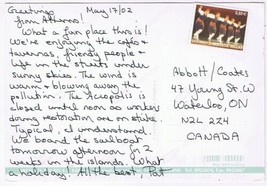 Greetings May 17/02
from Athens!
What a fun place this is!
We're enjoying the cafés &
tavernas, friendly people &
life in the streets under
sunny skies. The wind is
warm & blowing away the
pollution. The Acropolis is
closed until noon as workers
doing restoration are on strike.
Typical, I understand.
We board the sailboat
tomorrow afternoon for 2
weeks in the islands. What
a holiday! All the best, Pat
Abbott/Coates
47 Young St. W
Waterloo, ON
N2L 2Z4
CANADA